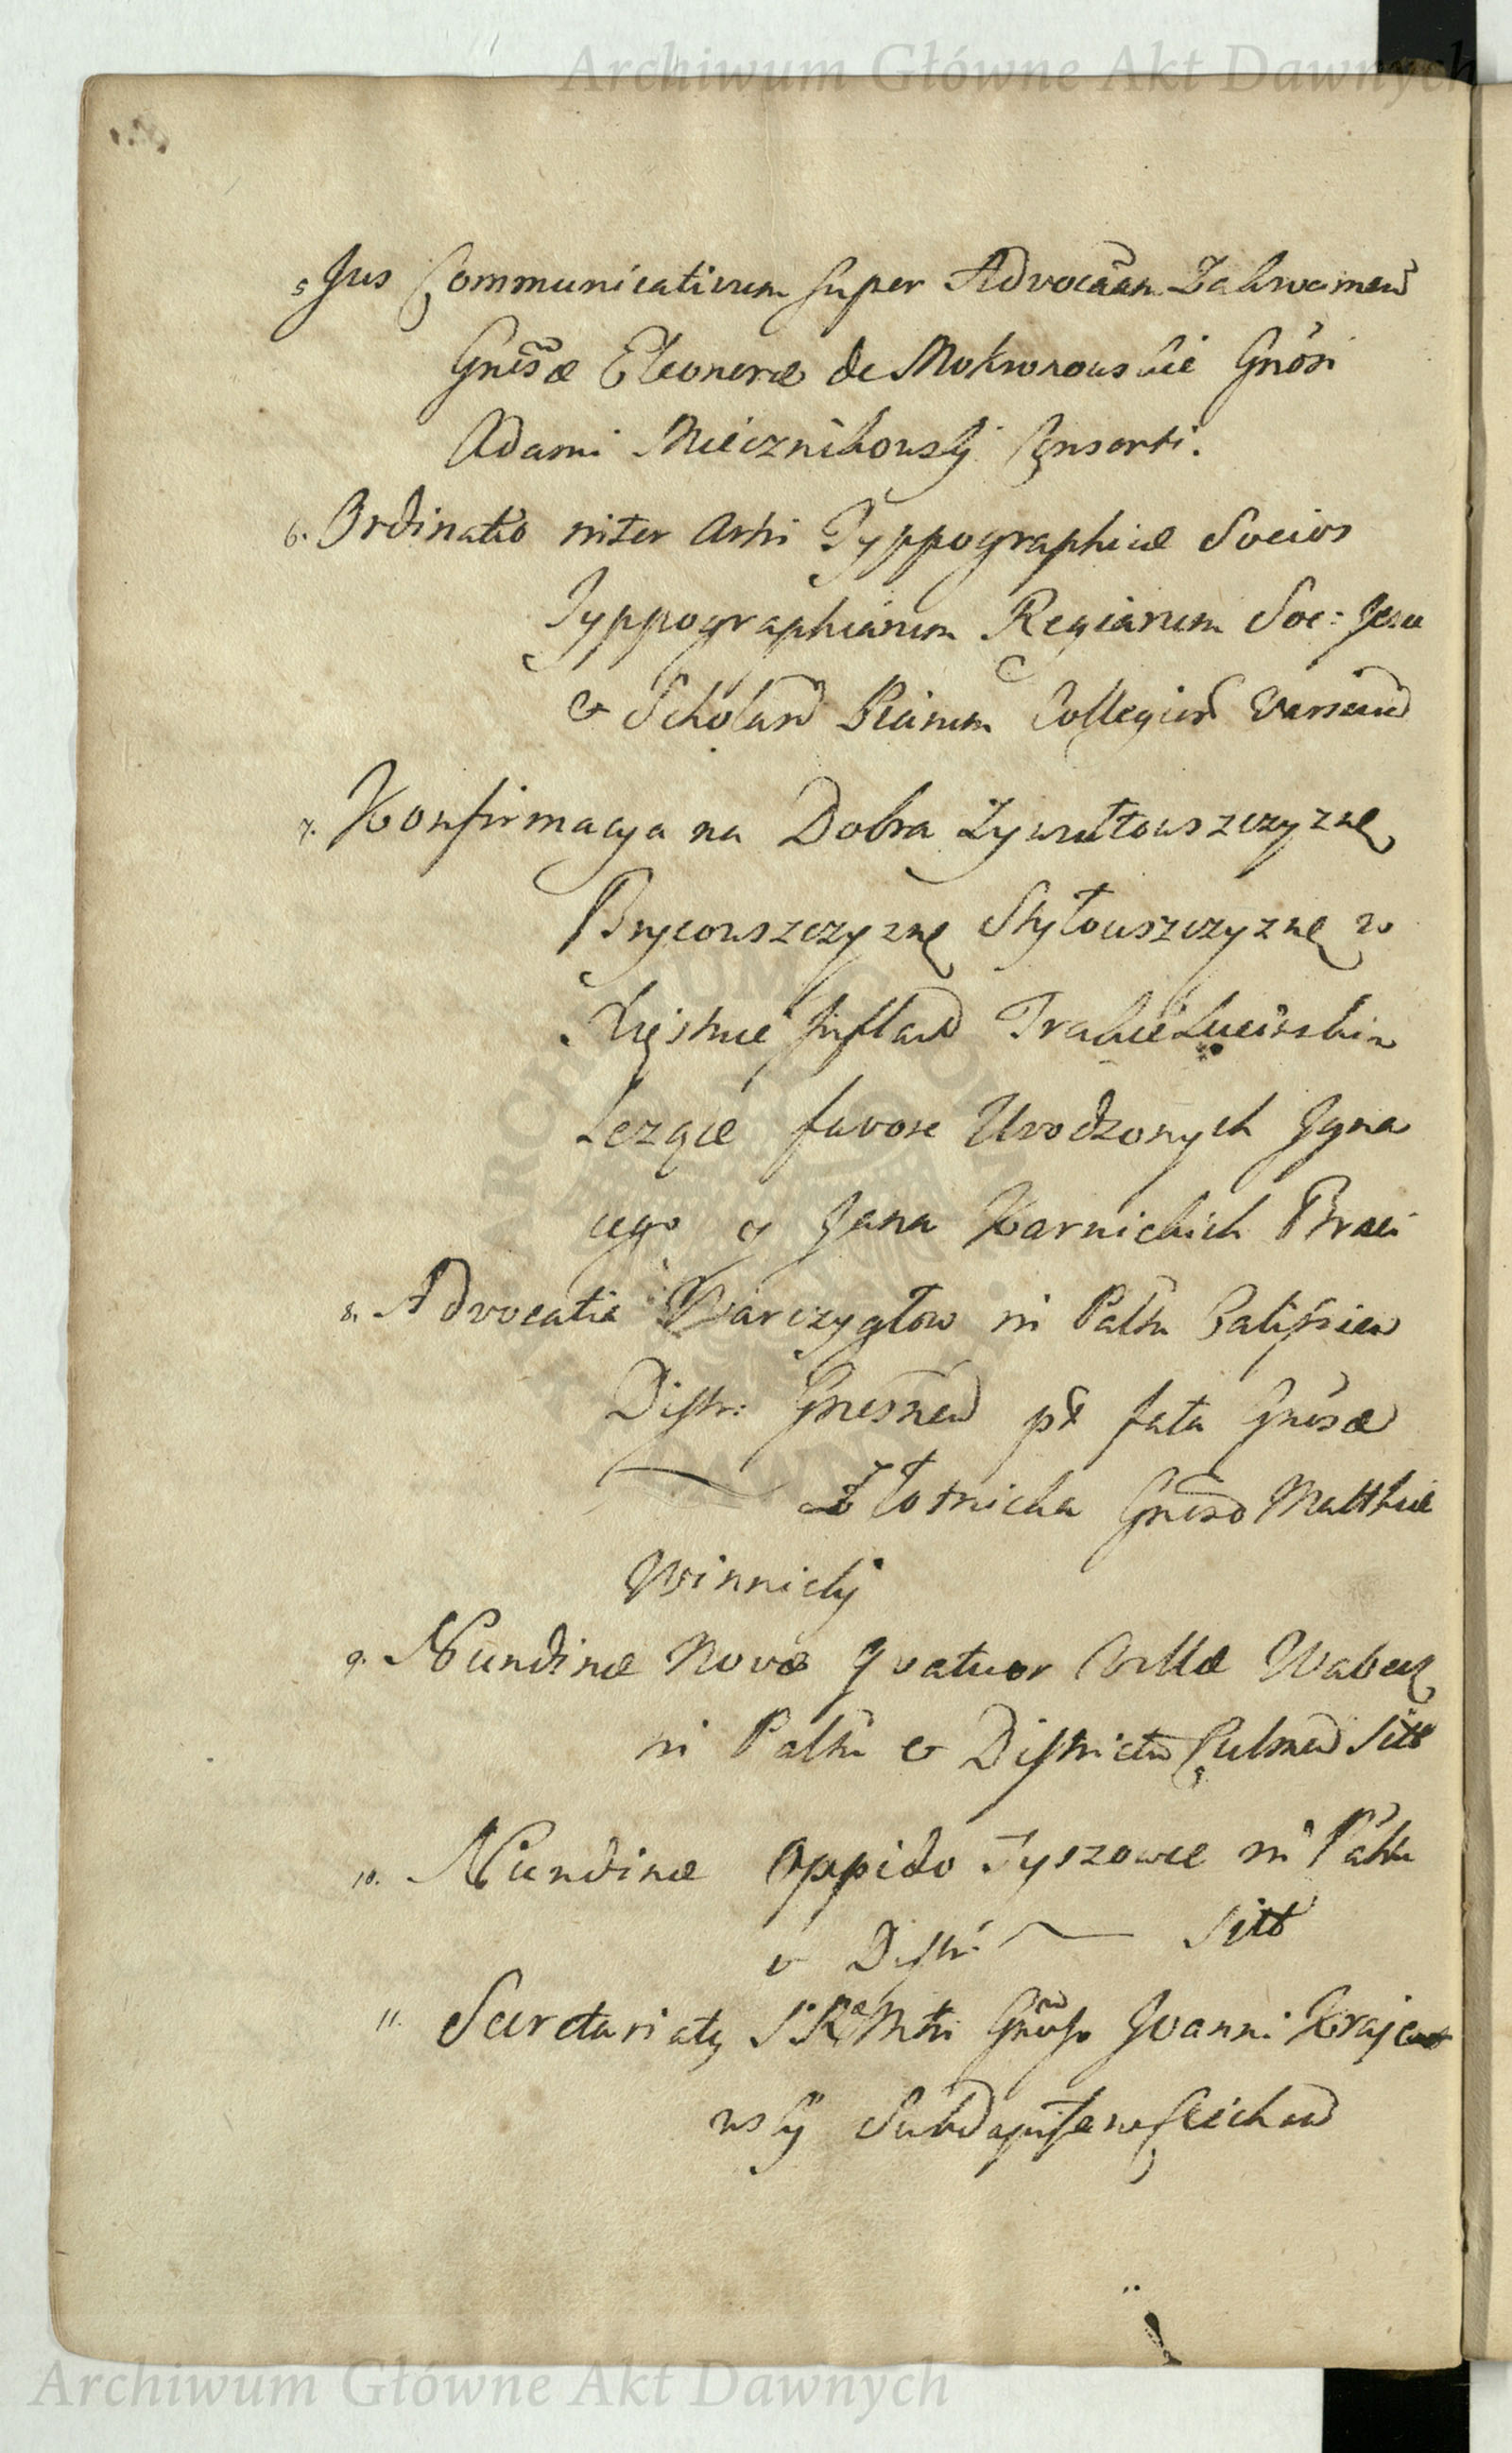 Archiwum Główne Akt Dawnych
5 Jus Communicativum super Advocãm Zakroimen
Gnesæ Eleonoræ de Mokronouskie Gnosi
Adami Miecznikowsky Consorti.
6. Ordinatio inter Arti Typpographicæ Socios
Typpographiarum Regiarum Soc: Jesu
& Scholarũ Piarum Collegior Varsavien
7. Konfirmacya na Dobra Żywułtowszczyznę
Brycowszczyznę Skyłowszczyznę w
Xięstwie Inflan Trakcie Lucińskim
Lezące favore Urodzonych Igna
cego y Jana Karnickich Braci
8. Advocatia Parczygłow in Palttu Calissien
Distr: Gnesnen pt fata Gnosæ
Złotnicka Gneso Matthiæ
Winnicky
9. Nundinæ Novæ Quatuor Villæ Wabcz
in Palttu & Districtu Culmen Sitæ
10. Nundinæ Oppido Tyszowce in Palttu
& Distr: Sitto
11. Secretariatq S R Mtti Gnoso Joanni Krajew
wsky Subdapifero Ciechan
Archiwum Główne Akt Dawnych